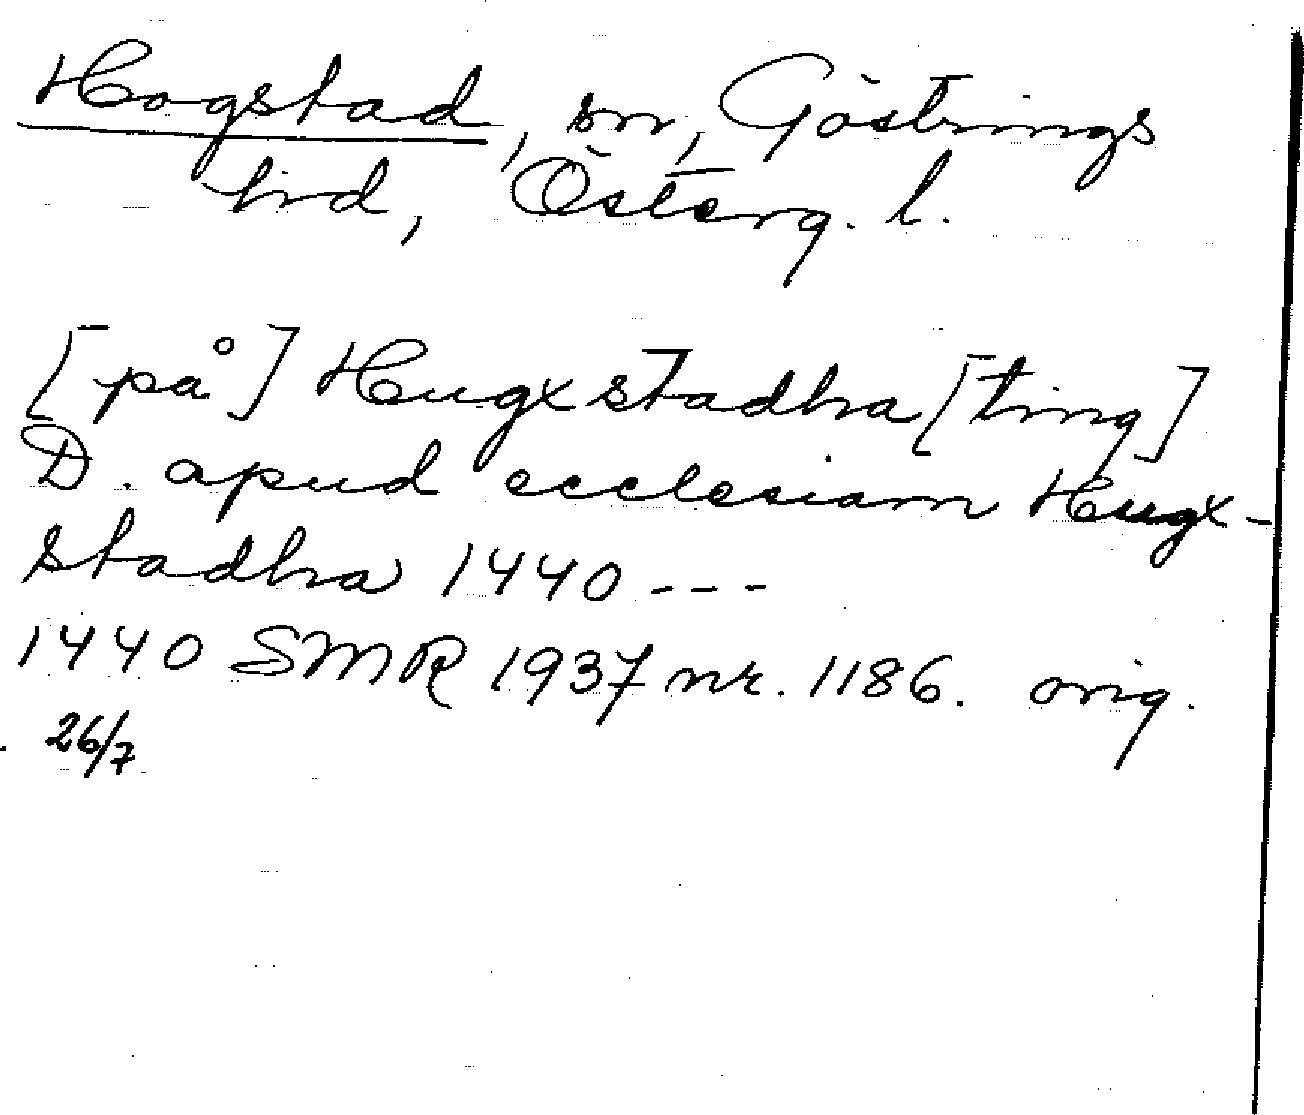 Hogstad, sn, Göstrings
hrd, Österg. l.
[på] Hugxstadha [ting]
D. apud ecclesiam Hugx-
stadha 1440 ---
1440 SMR 1937 nr. 1186. orig.
26/7